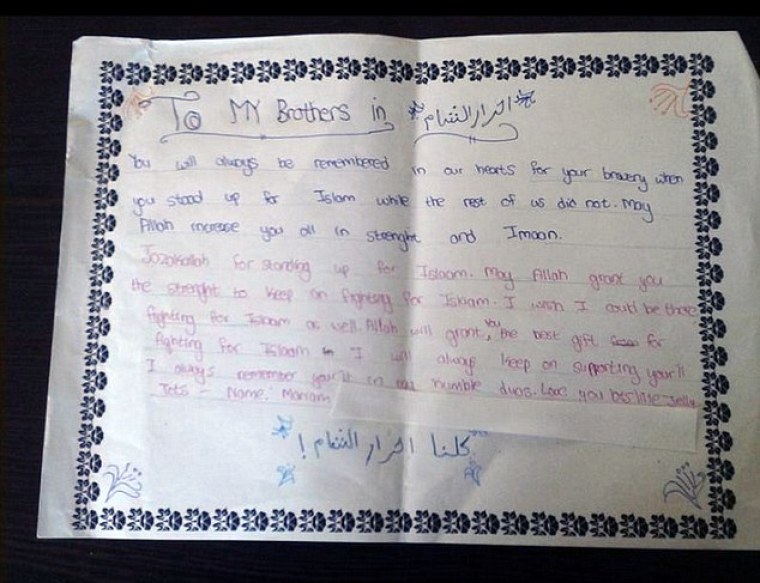 To MY Brothers in احرار الشام
You will always be remembered in our hearts for your bravery when
you stood up for Islam while the rest of us did not. May
Allah increase you all in strenght and Imaan.
Jazakallah for standing up for Islaam. May Allah grant you
the strenght to keep on fighting for Islaam. I wish I could be there
fighting for Islaam as well. Allah will grant you the best gift for
fighting for Islaam I will always keep on supporting your'll
I always remember your'll in humble duas. Love you lots like Jelly
Tots - Name: Mariam
كلنا احرار الشام !